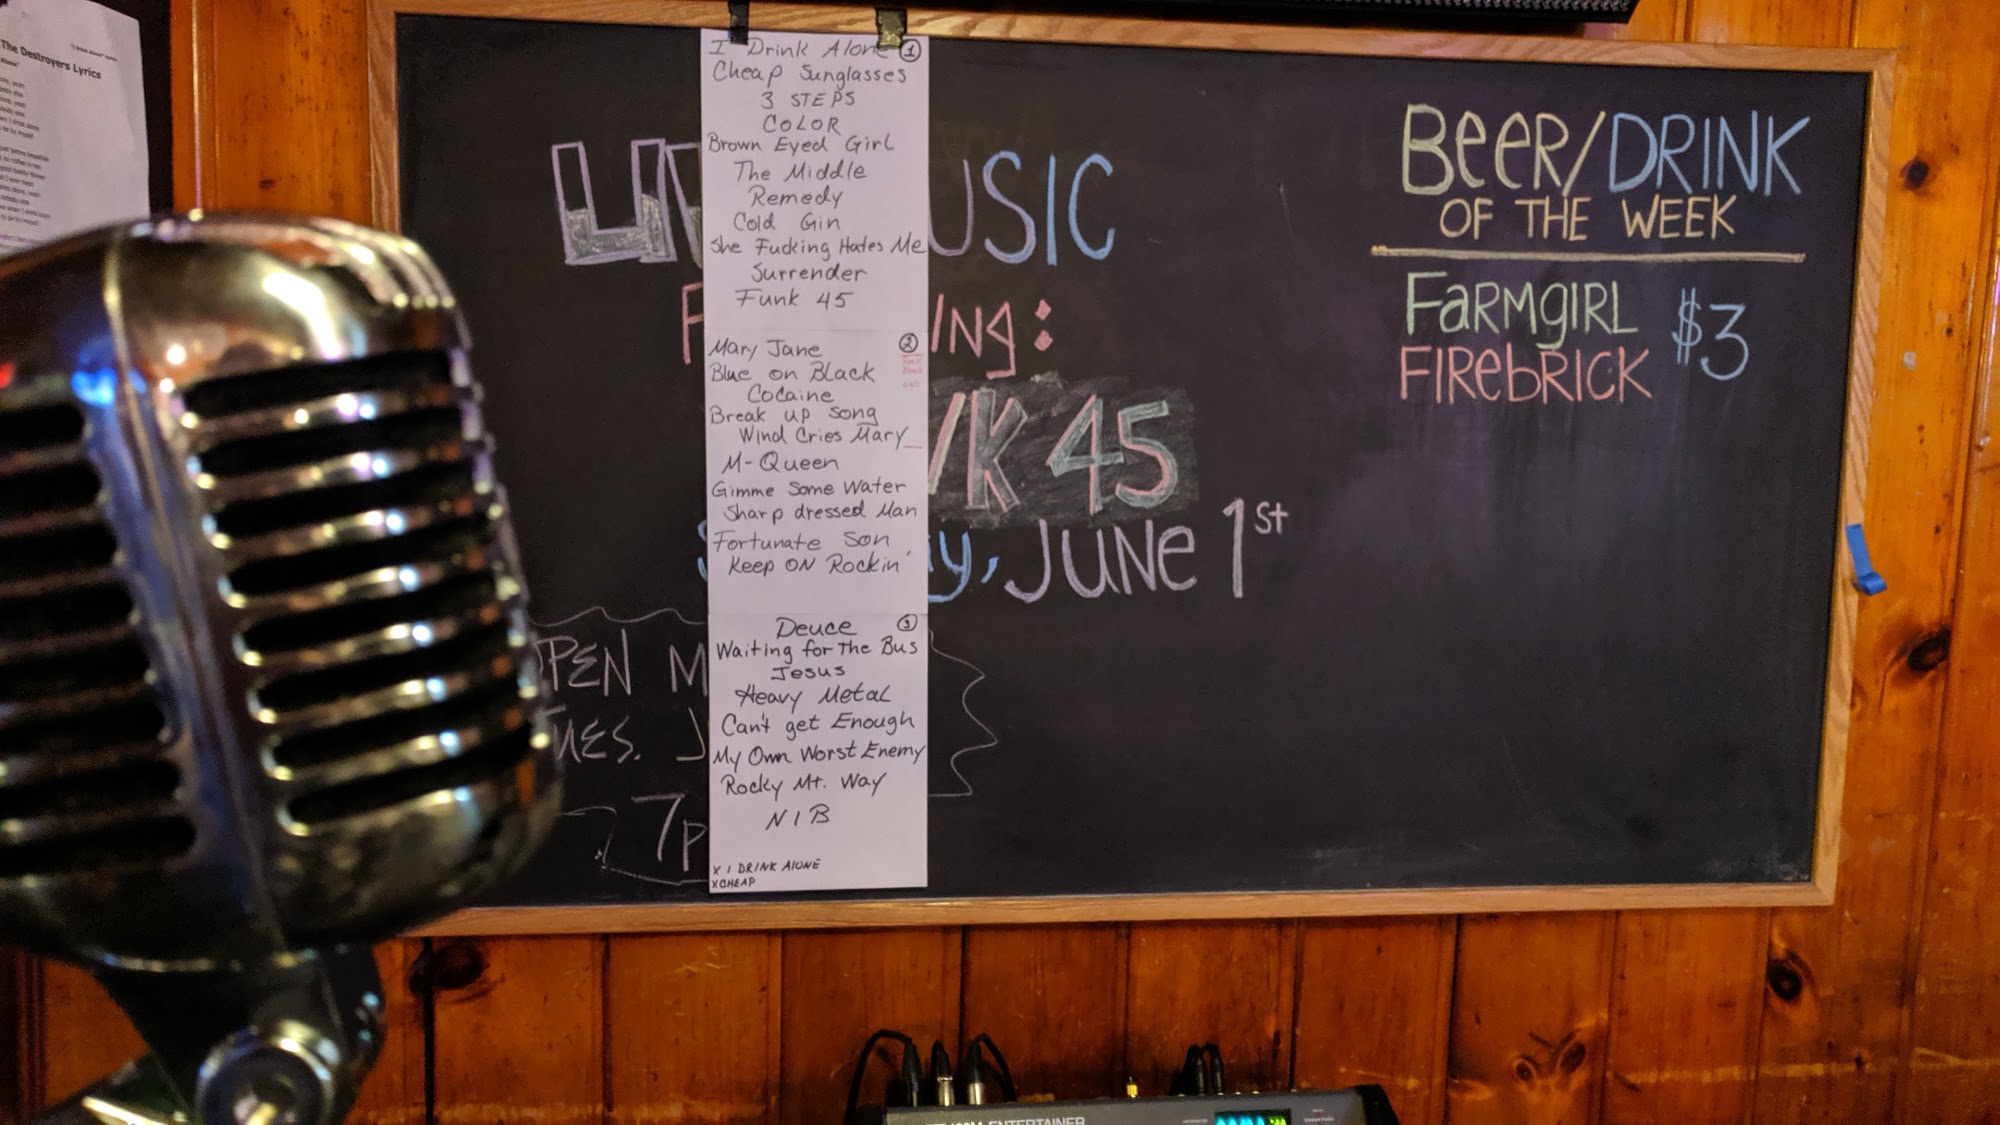 The Destroyers Lyrics
I Drink Alone 1
Cheap Sunglasses
3 STEPS
COLOR
Brown Eyed Girl
The Middle
Remedy
Cold Gin
She Fucking Hates Me
Surrender
Funk 45
Mary Jane 2
Blue on Black
Cocaine
Break up Song
Wind Cries Mary
M-Queen
Gimme Some Water
Sharp dressed Man
Fortunate Son
Keep ON Rockin'
Deuce 3
Waiting for The Bus
Jesus
Heavy Metal
Can't get Enough
My Own Worst Enemy
Rocky Mt. Way
NIB
X I DRINK ALONE
X CHEAP
LI USIC
F ING:
K 45
S y, JUNE 1st
PEN M
UES. J
7p
BEER/DRINK
OF THE WEEK
FARMGIRL $3
FIREBRICK
ENTERTAINER